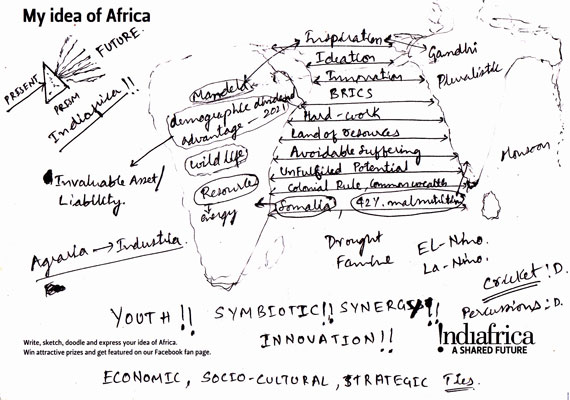 My idea of Africa
FUTURE.
PRESENT
PRISM
Indiafrica!!
Inspiration
Ideation
Innovation
BRICS
Hard-work
Land of resources
Avoidable Suffering
UnFulfilled Potential
Colonial Rule, Commonwealth
Somalia
42% malnutrition
Gandhi
Pluralistic
Monsoon
Mandela
(demographic dividend
advantage - 2021)
wild life
Resources
energy
Invaluable Asset/
Liability.
Agraria → Industria.
Drought
Famine
EL-Nino.
La-Nino.
Cricket :D.
Percussions :D.
YOUTH!! SYMBIOTIC!! SYNERGY!!
INNOVATION!!
Write, sketch, doodle and express your idea of Africa.
Win attractive prizes and get featured on our Facebook fan page.
!ndiafrica
A SHARED FUTURE
ECONOMIC, SOCIO-CULTURAL, STRATEGIC Ties.